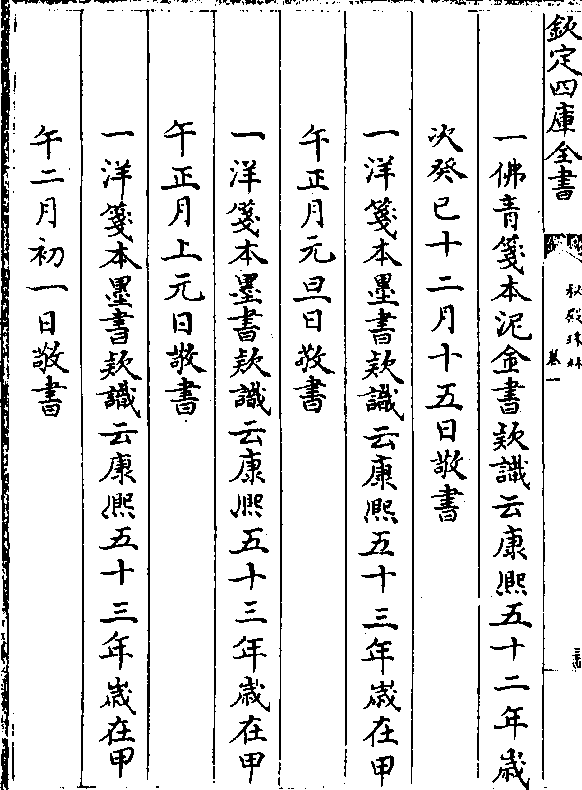 欽定四庫全書
秘殿珠林
卷一
一佛青箋本泥金書款識云康熙五十二年歲
次癸巳十二月十五日敬書
一洋箋本墨書款識云康熙五十三年歲在甲
午正月元旦日敬書
一洋箋本墨書款識云康熙五十三年歲在甲
午正月上元日敬書
一洋箋本墨書款識云康熙五十三年歲在甲
午二月初一日敬書